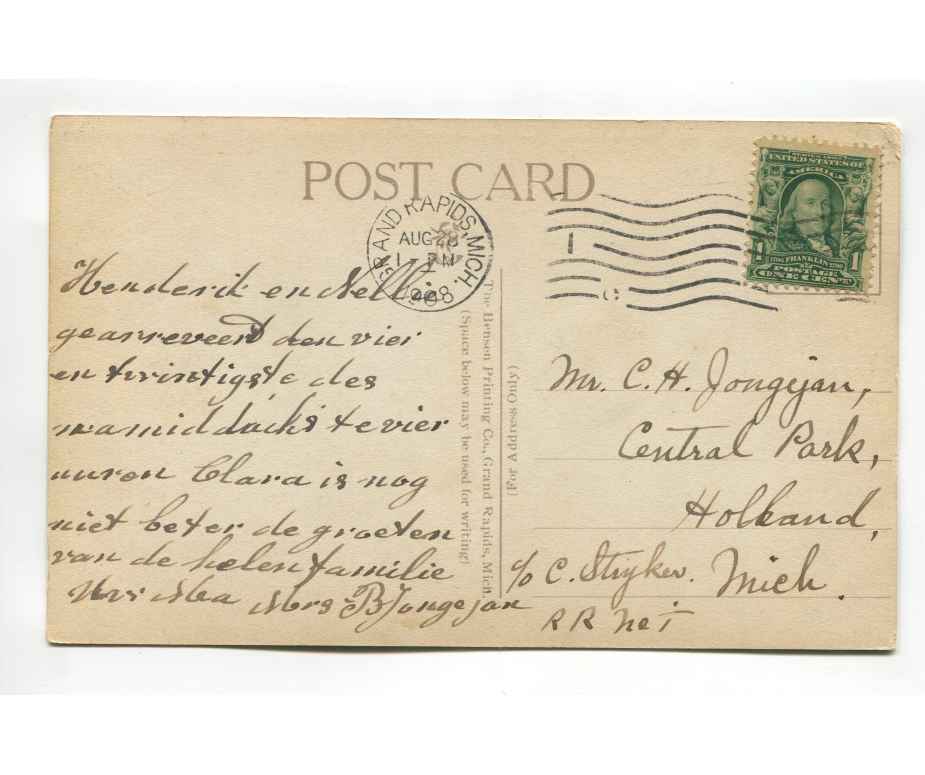 POST CARD
GRAND RAPIDS, MICH.
AUG 28
1908
1
UNITED STATES OF
AMERICA
FRANKLIN
POSTAGE
1 ONE CENT 1
Henderik en Nellie
gearreveerd den vier
en twintigste des
namiddachs te vier
uuren Clara is nog
niet beter de groeten
van de helen familie
Mrs B Jongejan
The Benson Printing Co., Grand Rapids, Mich.
(Space below may be used for writing)
(For Address Only)
Mr. C. H. Jongejan,
Central Park,
Holland,
Mich.
c/o C. Stryker.
R R No 1